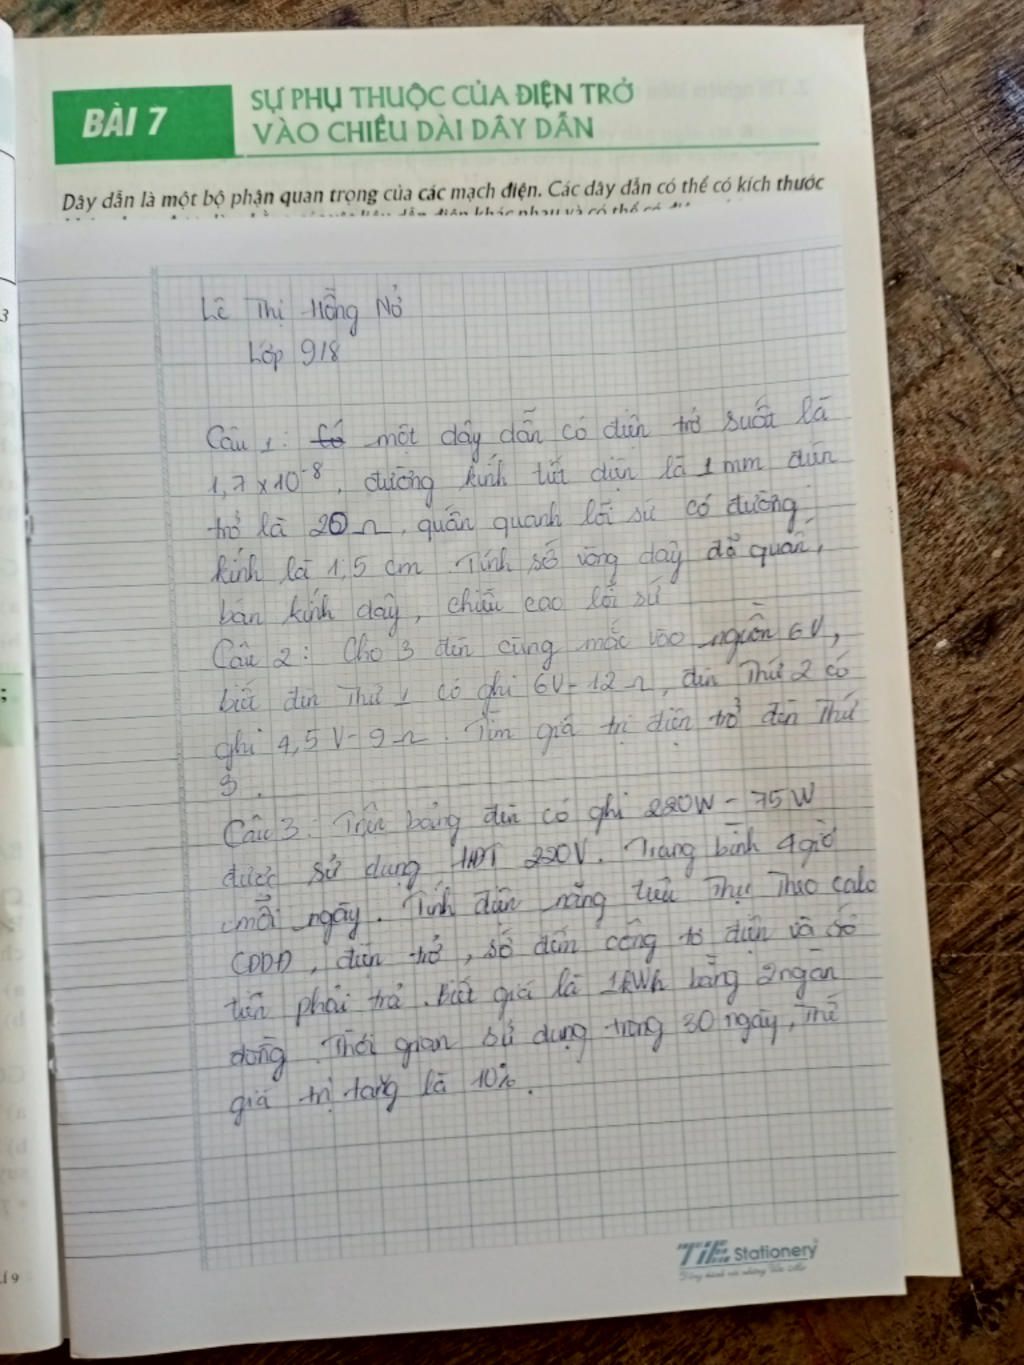 BÀI 7
SỰ PHỤ THUỘC CỦA ĐIỆN TRỞ
VÀO CHIỀU DÀI DÂY DẪN
Dây dẫn là một bộ phận quan trọng của các mạch điện. Các dây dẫn có thể có kích thước
3
Lê Thị Hồng Nở
Lớp 9/8
Câu 1: một dây dẫn có điện trở suất là
1,7 x 10⁻⁸, đường kính tiết diện là 1 mm điện
trở là 20 Ω, quấn quanh lõi sứ có đường
kính là 1,5 cm. Tính số vòng dây để quấn,
bán kính dây, chiều cao lõi sứ
Câu 2: Cho 3 đèn cùng mắc vào nguồn 6V,
biết đèn Thứ 1 có ghi 6V-12Ω, đèn Thứ 2 có
ghi 4,5V-9Ω. Tìm giá trị điện trở đèn Thứ
3.
Câu 3: Trên bóng đèn có ghi 220W - 75W
được sử dụng HĐT 220V. Trung bình 4 giờ
mỗi ngày. Tính điện năng tiêu Thụ Theo calo
CDDĐ, điện trở, số đếm công tơ điện và số
tiền phải trả. Biết giá là 1kWh bằng 2 ngàn
đồng. Thời gian sử dụng trong 30 ngày, Thế
giá trị tăng là 10%.
TiE Stationery